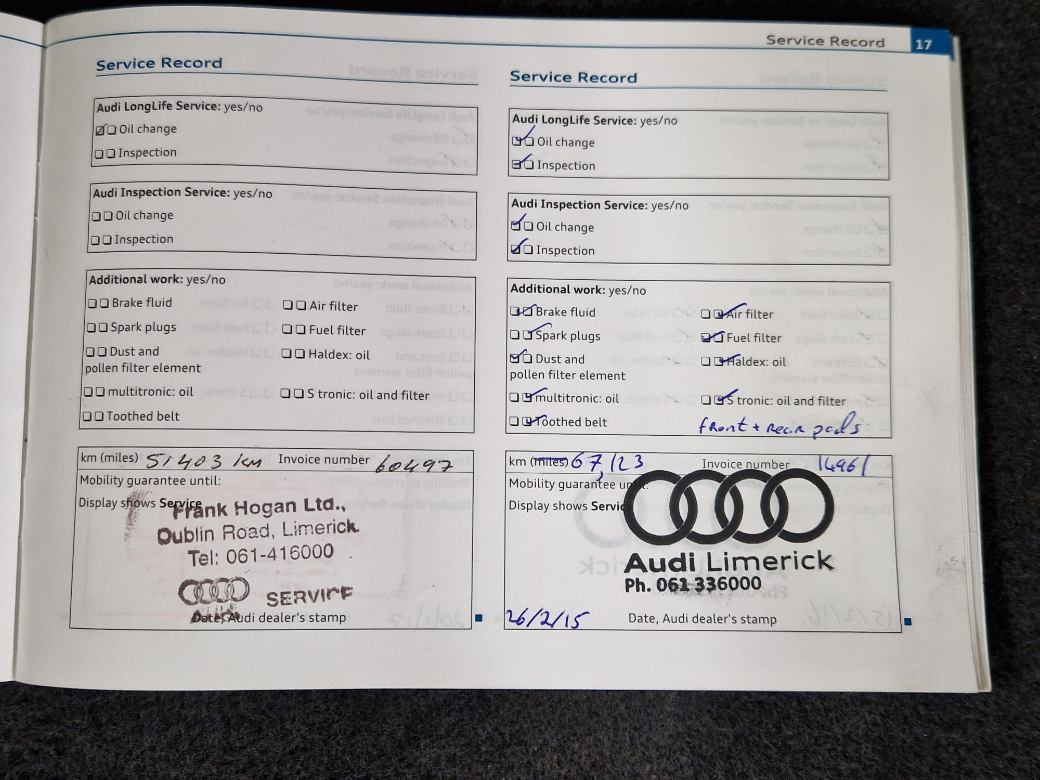 Service Record 17
Service Record
Audi LongLife Service: yes/no
Oil change
Inspection
Audi Inspection Service: yes/no
Oil change
Inspection
Additional work: yes/no
Brake fluid Air filter
Spark plugs Fuel filter
Dust and Haldex: oil
pollen filter element
multitronic: oil S tronic: oil and filter
Toothed belt
km (miles) 51403 km Invoice number 60497
Mobility guarantee until:
Display shows Service
Frank Hogan Ltd.,
Dublin Road, Limerick.
Tel: 061-416000
SERVICE
Date, Audi dealer's stamp
Service Record
Audi LongLife Service: yes/no
Oil change
Inspection
Audi Inspection Service: yes/no
Oil change
Inspection
Additional work: yes/no
Brake fluid Air filter
Spark plugs Fuel filter
Dust and Haldex: oil
pollen filter element
multitronic: oil S tronic: oil and filter
Toothed belt front + rear pads
km (miles) 67,123 Invoice number 14961
Mobility guarantee until:
Display shows Servic
Audi Limerick
Ph. 061 336000
26/2/15 Date, Audi dealer's stamp